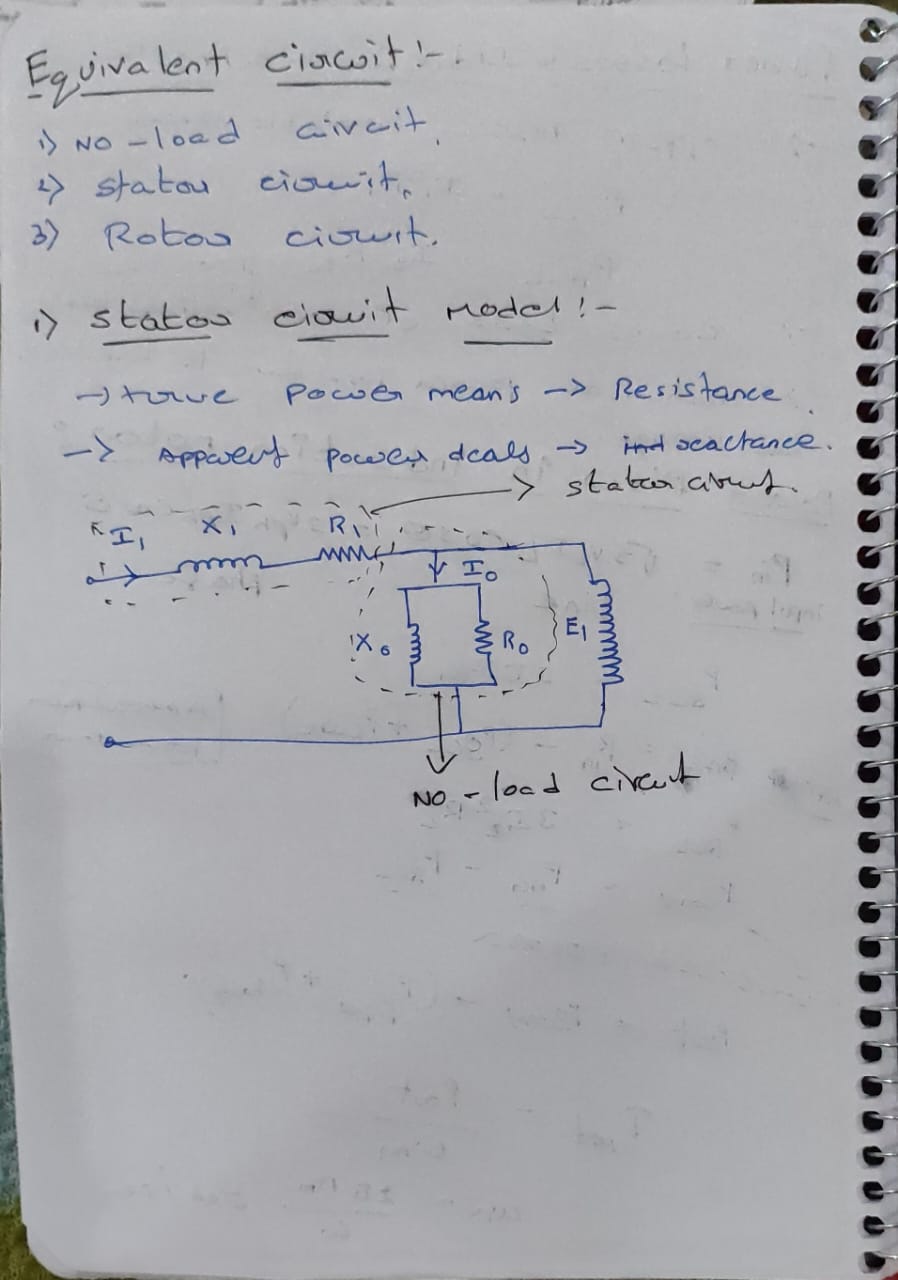 Equivalent circuit :-
1) NO-load circuit.
2) stator circuit.
3) Rotor circuit.
1) stator circuit model :-
→ true power means → Resistance.
→ Apparent power deals → reactance.
→ stator circuit.
I₁ X₁ R₁
I₀
X₀ R₀ E₁
NO-load circuit